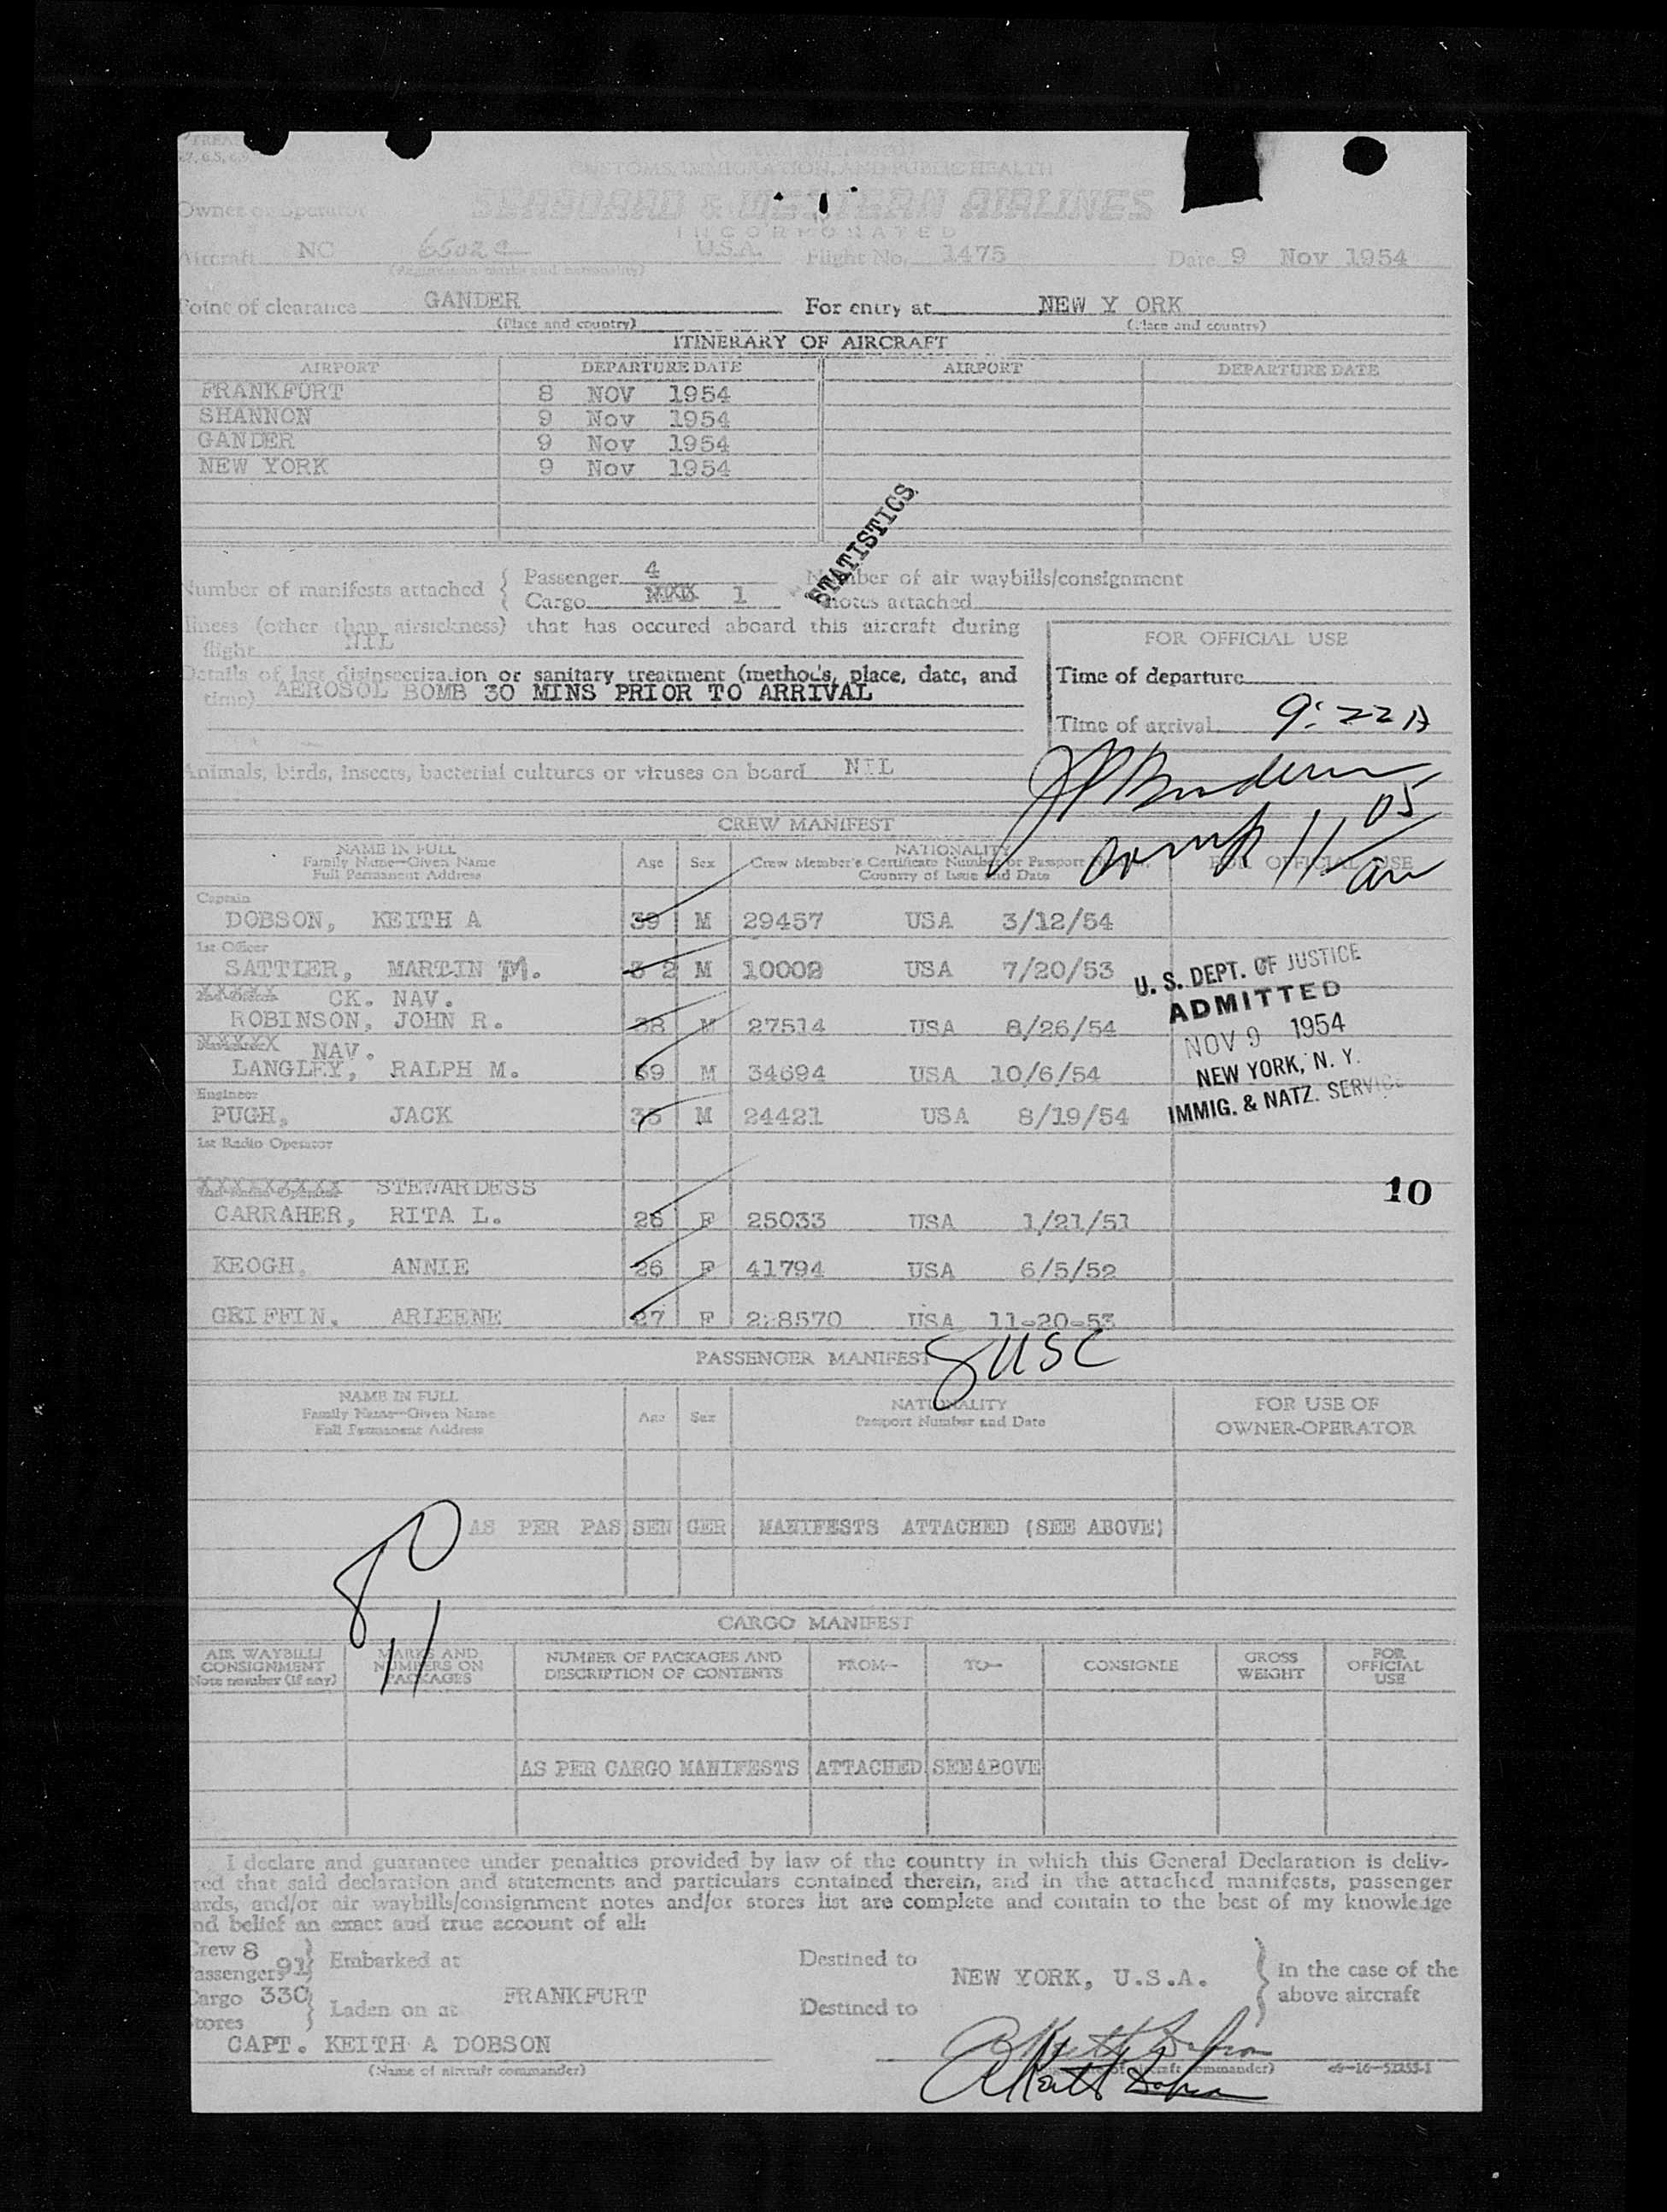 CUSTOMS, IMMIGRATION, AND PUBLIC HEALTH
SEABOARD & WESTERN AIRLINES
INCORPORATED
Owner or Operator
Aircraft NC U.S.A. Flight No. 1475 Date 9 Nov 1954
(Registration marks and nationality)
Point of clearance GANDER For entry at NEW Y ORK
(Place and country) (Place and country)
ITINERARY OF AIRCRAFT
AIRPORT DEPARTURE DATE AIRPORT DEPARTURE DATE
FRANKFURT 8 NOV 1954
SHANNON 9 Nov 1954
GANDER 9 Nov 1954
NEW YORK 9 Nov 1954
STATISTICS
Number of manifests attached { Passenger 4
Cargo 1
Number of air waybills/consignment
notes attached
llness (other than airsickness) that has occured aboard this aircraft during
flight NIL
Details of last disinsectization or sanitary treatment (method, place, date, and
time) AEROSOL BOMB 30 MINS PRIOR TO ARRIVAL
FOR OFFICIAL USE
Time of departure
Time of arrival 9:22 A
Animals, birds, insects, bacterial cultures or viruses on board NIL
11 05
am
CREW MANIFEST
NAME IN FULL
Family Name—Given Name
Full Permanent Address
Age Sex
NATIONALITY
Crew Member's Certificate Number or Passport
Country of Issue and Date
FOR OFFICIAL USE
Captain
DOBSON, KEITH A 39 M 29457 USA 3/12/54
1st Officer
SATTLER, MARTIN M. 3 2 M 10002 USA 7/20/53
XXXXX CK. NAV.
ROBINSON, JOHN R. 38 M 27514 USA 8/26/54
XXXXX NAV.
LANGLEY, RALPH M. 39 M 34694 USA 10/6/54
Engineer
PUGH, JACK 35 M 24421 USA 8/19/54
1st Radio Operator
XXXXXXXXX STEWARDESS
CARRAHER, RITA L. 26 F 25033 USA 1/21/51
KEOGH, ANNIE 26 F 41794 USA 6/5/52
GRIFFIN, ARLEENE 27 F USA 11-20-53
U. S. DEPT. OF JUSTICE
ADMITTED
NOV 9 1954
NEW YORK, N. Y.
IMMIG. & NATZ. SERVICE
10
PASSENGER MANIFEST
8 USC
NAME IN FULL
Family Name—Given Name
Full Permanent Address
Age Sex
NATIONALITY
Passport Number and Date
FOR USE OF
OWNER-OPERATOR
AS PER PAS SEN GER MANIFESTS ATTACHED (SEE ABOVE)
CARGO MANIFEST
AIR WAYBILL/
CONSIGNMENT
Note number (if any)
MARKS AND
NUMBERS ON
PACKAGES
NUMBER OF PACKAGES AND
DESCRIPTION OF CONTENTS
FROM— TO— CONSIGNEE
GROSS
WEIGHT
FOR
OFFICIAL
USE
AS PER CARGO MANIFESTS ATTACHED SEE ABOVE
I declare and guarantee under penalties provided by law of the country in which this General Declaration is deliv-
red that said declaration and statements and particulars contained therein, and in the attached manifests, passenger
ards, and/or air waybills/consignment notes and/or stores list are complete and contain to the best of my knowledge
nd belief an exact and true account of all:
Crew 8
Passengers 91
Embarked at
Cargo 330
Stores
Laden on at
FRANKFURT
Destined to
NEW YORK, U.S.A.
Destined to
In the case of the
above aircraft
CAPT. KEITH A DOBSON
(Name of aircraft commander)